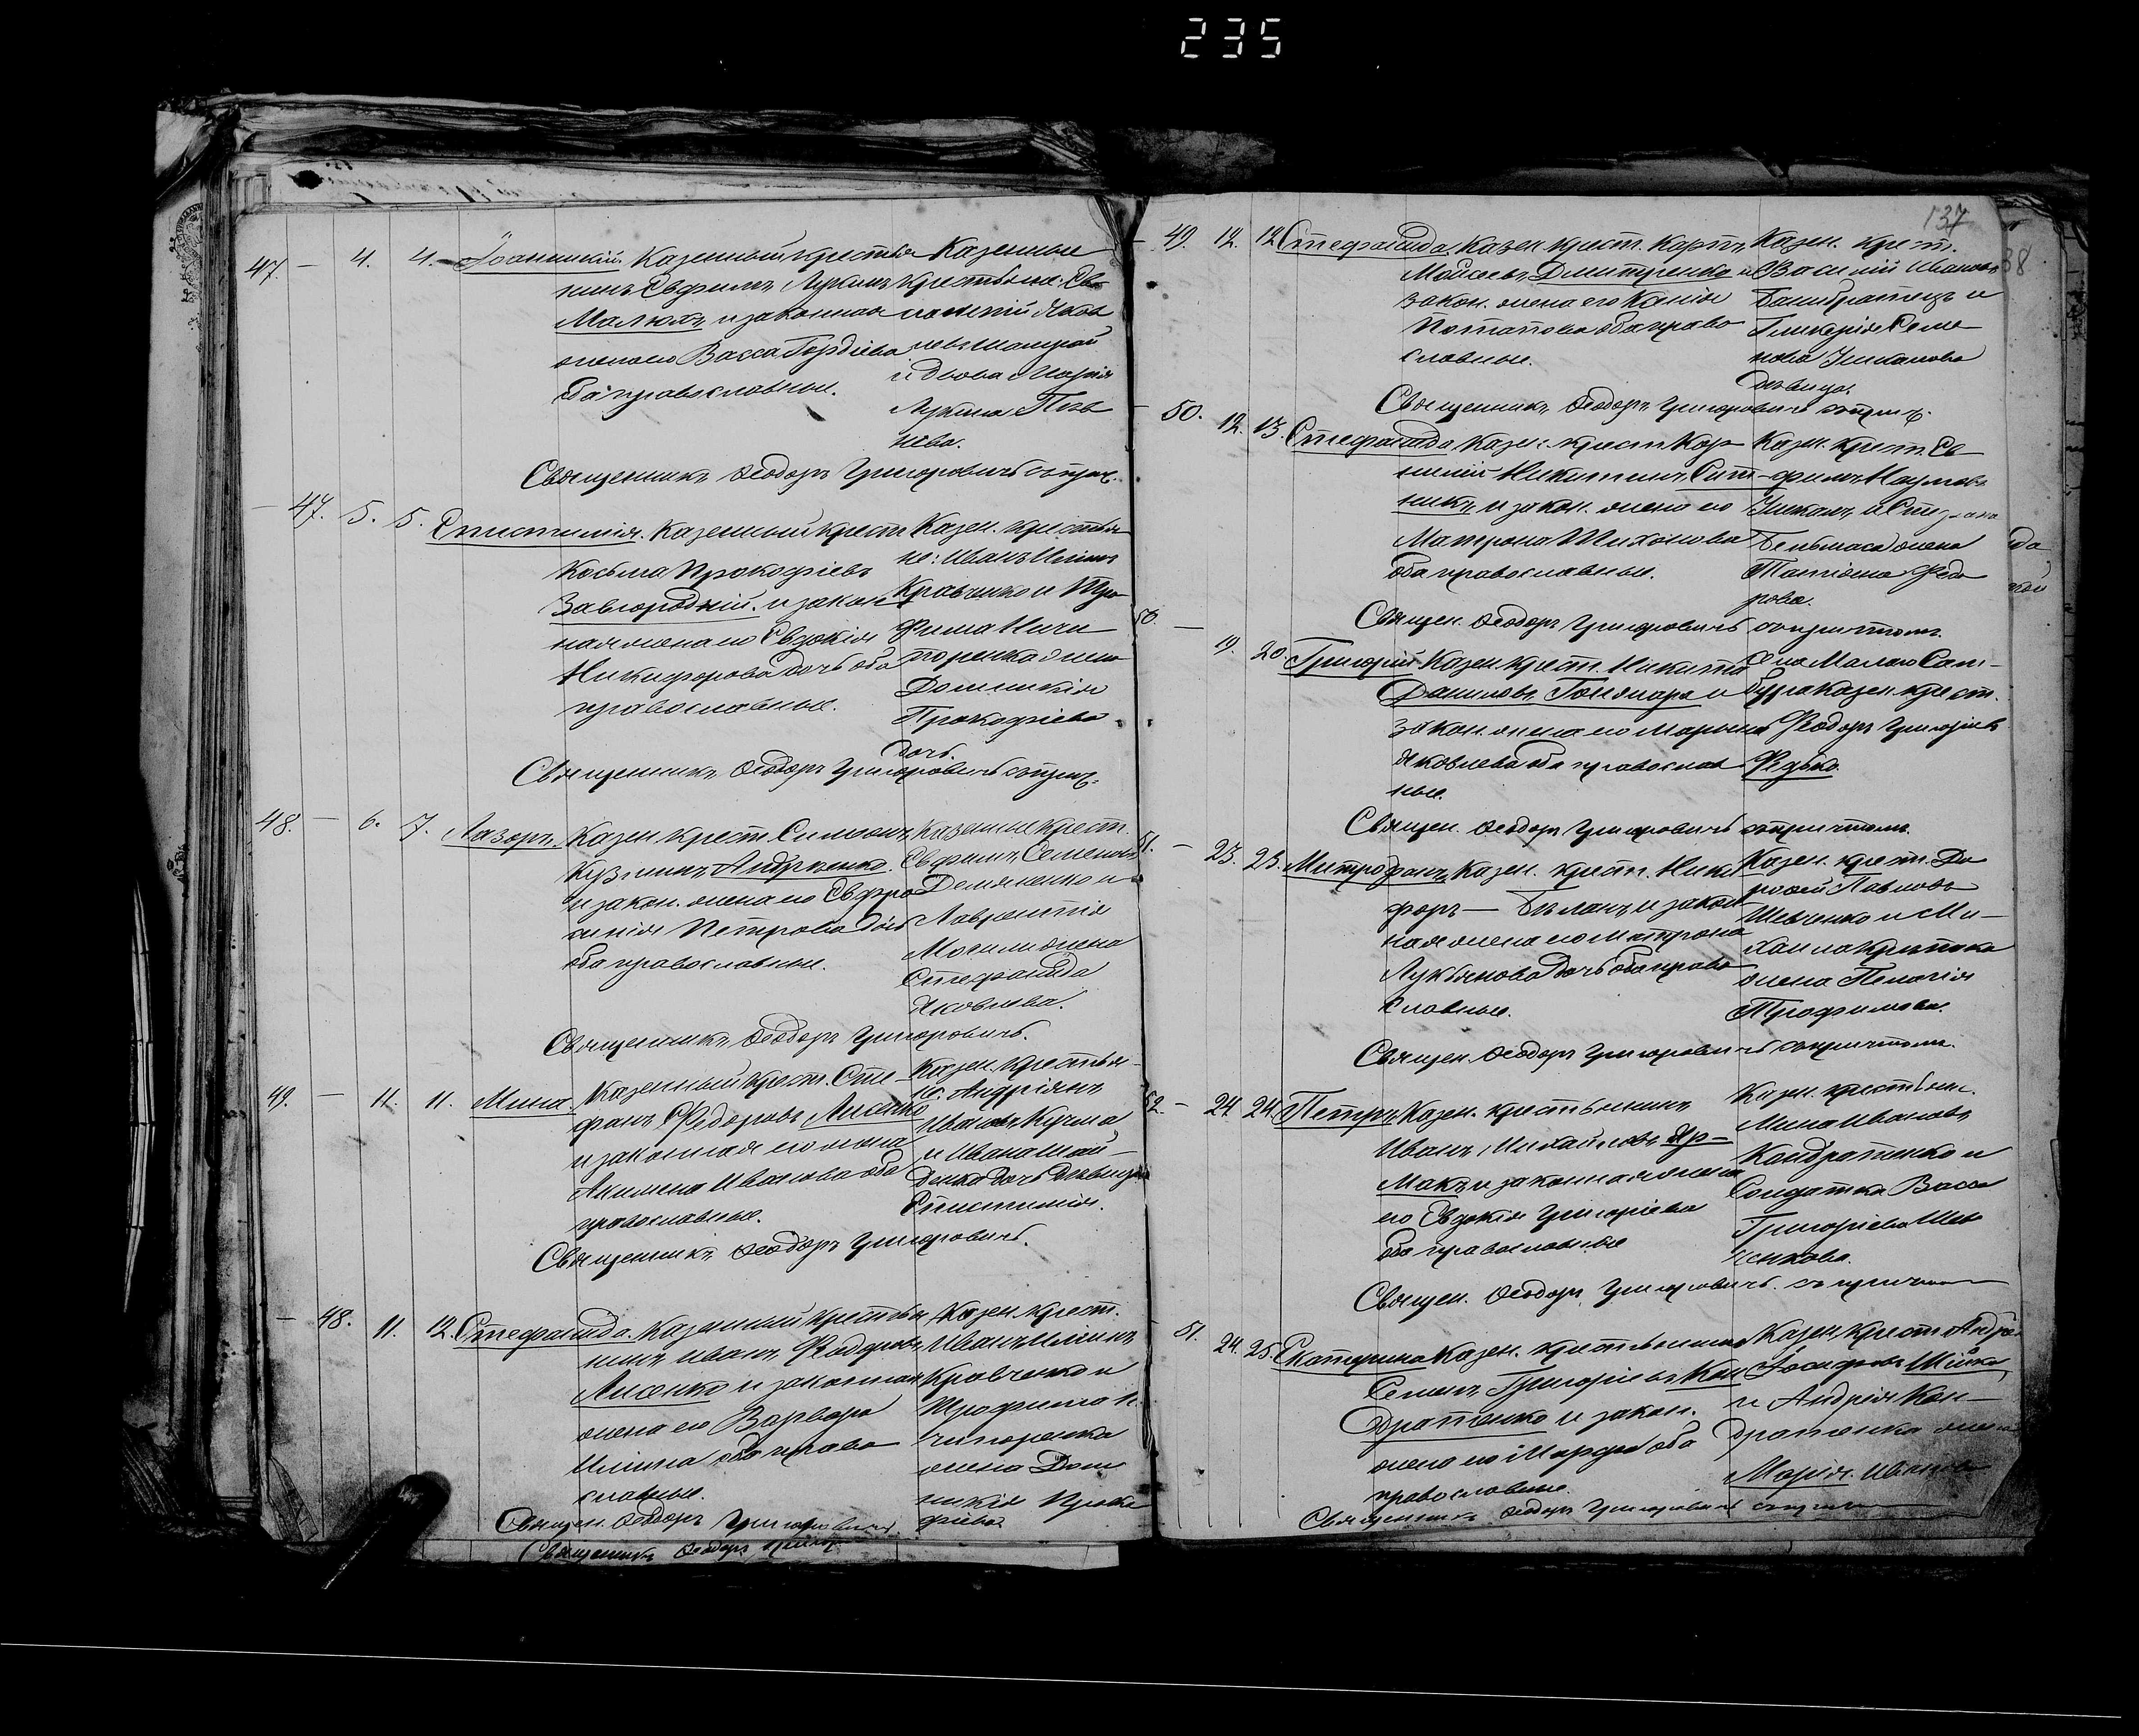 235
137
47. — 4. 4. Іоанникій. Казенный крестья
нинъ Евфимъ Лукинъ
Малюхъ и законная
жена его Васса Гордіева
оба православные.
Казенные
крестьяне: Ев
и вдова Марія
Лукина
Священникъ Ѳеодоръ Григоровичъ съ прич.
— 47. 5. 5. Епистимія. Казенный крест
Косьма Прокофіевъ
Завгородній. и закон
ная жена его Евдокія
Никифорова дочь оба
православные.
Казен. крестья
не: Иванъ Ильинъ
Кравченко и Тро
фима Ничи
поренка жена
Домникія
Прокофіева
дочь.
Священникъ Ѳеодоръ Григоровичъ съ прич.
48. — 6. 7. Лазорь. Казен. крест. Симеонъ
Кузминъ Андрѣенко.
и закон. жена его Евфро
синія Петрова дочь
оба православные.
Казенные крест.
Евфимъ Семеновъ
Демяненко и
Лаврентія
жена
Стефанида
Яковлева.
Священникъ Ѳеодоръ Григоровичъ.
49. — 11. 11. Мина. Казенный крест. Сте
фанъ Федоровъ Лисенко
и законная его жена
Акилина Иванова оба
православные.
Казен. крестья
не. Андріянъ
Ивановъ Кучма
и Ивана Шай
денка дочь дѣвица
Епистимія.
Священникъ Ѳеодоръ Григоровичъ.
— 48. 11. 12. Стефанида. Казенный крестья
нинъ Иванъ Феодоровъ
Лисенко и законная
жена его Варвара
Ильина оба право
славные.
Казен. крест.
Иванъ Ильинъ
Кравченко и
Трофима Н
чипоренка
жена Дом
никія Проко
фіева
Священ. Ѳеодоръ Григоровичъ.
Священникъ Ѳеодоръ Григор
— 49. 12. 12 Стефанида. Казен. крест. Карпъ
Моисеевъ Дмитренко и
закон. жена его Ксенія
Потапова оба право
славные.
Казен. крест.
Василій Ивановъ
и
Гликерія Семе
нова
дѣвица.
Священникъ Ѳеодоръ Григоровичъ съ прич.
— 50. 12. 13. Стефанида. Казен. крест. Кор
нилій Никитинъ Сит
никъ и закон. жена его
Матрона Тихонова
оба православные.
Казен. крест. Ев
фимъ Наумовъ
и Стефана
жена
Татіана Федо
рова.
Священ. Ѳеодоръ Григоровичъ съ причтомъ.
50. — 19. 20. Григорій. Казен. крест. Никита
Даниловъ Гончаръ и
закон. жена его Марина
Яковлева оба православ
ные.
казен. крест.
Феодоръ Григоріевъ
Федько.
Священ. Ѳеодоръ Григоровичъ съ причтомъ.
51. — 23. 23. Митрофанъ. Казен. крест. Ники
форъ — Бѣланъ и закон
ная жена его Матрона
Лукьянова дочь оба право
славные.
Казен. крест. До
рофей Павловъ
Шевченко и Ми
хаила
жена Пелагія
Трофимова.
Священ. Ѳеодоръ Григоровичъ съ причтомъ.
52. — 24. 24. Петръ. Казен. крестьянинъ
Иванъ Михайловъ Яр
макъ и законная жена
его Евдокія Григоріева
оба православные
Казен. крестьяне.
Мина Ивановъ
Кондратенко и
Солдатка Васса
Григоріева Шев
ченкова.
Священ. Ѳеодоръ Григоровичъ. съ причтомъ
— 51. 24. 25. Екатерина. Казен. крестьянинъ
Семенъ Григорьевъ Кон
дратенко и закон.
жена его Марфа оба
православные.
Казен. крест. Андрей
Іосифовъ Шійка
и Андрія Кон
дратенка жена
Марія Иванова
Священникъ Ѳеодоръ Григоровичъ съ причтомъ